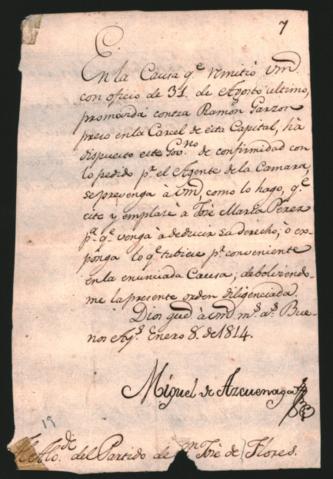 7
E.
En la Causa qe. remitió Vmd.
con oficio de 31 de Agosto ultimo,
promovida contra Ramon Garzon
preso en la Carcel de esta Capital, há
dispuesto este Govno. de conformidad con
lo pedido pr. el Agente de la Camara,
se prevenga á Vmd, como lo hago, qe.
cite y emplase á José Maria Perez
pa. qe. venga á deducir su derecho, ó ex-
ponga lo qe. tubiese pr. conveniente
en la enunciada Causa; debolviendo-
me la presente orden diligenciada.
Dios gue. á Vmd ms. as. Bue-
nos Ays. Enero 8. de 1814.
Miguel de Azcuenaga
19
de
del Partido de Sn. José de Flores.